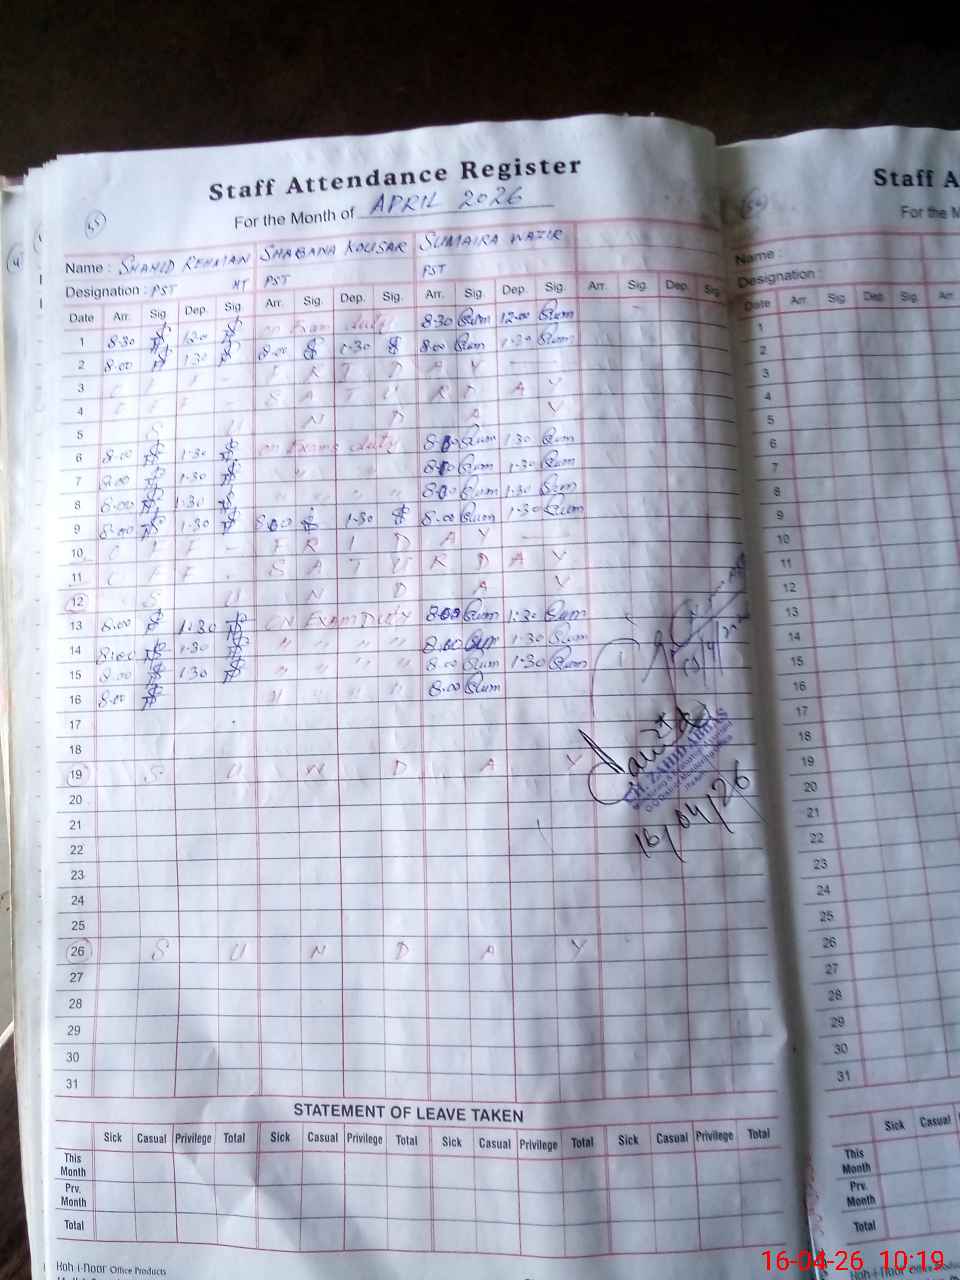 Staff Attendance Register
For the Month of APRIL 2026
45
Name : SHAHID REHMAN SHABANA KOUSAR SUMAIRA WAZIR
Designation : PST HT PST PST
Date Arr. Sig. Dep. Sig. Arr. Sig. Dep. Sig. Arr. Sig. Dep. Sig. Arr. Sig. Dep. Sig.
1 8.30 12.00 on Exam duty 8.30 Sum 12.00 Sum
2 8.00 1.30 8.00 1.30 8.00 Sum 1.30 Sum
3 O F F - F R I D A Y
4 O F F - S A T U R D A Y
5 S U N D A Y
6 8.00 1.30 on Exams duty 8.00 Sum 1.30 Sum
7 8.00 1.30 " " " " 8.00 Sum 1.30 Sum
8 8.00 1.30 " " " " 8.00 Sum 1.30 Sum
9 8.00 1.30 8.00 1.30 8.00 Sum 1.30 Sum
10 O F F - F R I D A Y
11 O F F - S A T U R D A Y
12 S U N D A Y
13 8.00 1:30 ON EXAM DUTY 8.00 Sum 1:30 Sum
14 8.00 1.30 " " " " 8.00 Sum 1.30 Sum
15 8.00 1.30 " " " " 8.00 Sum 1.30 Sum
16 8.00 " " " " 8.00 Sum
17
18
19 S U N D A Y
20
21
22
23
24
25
26 S U N D A Y
27
28
29
30
31
ZAHID ABBAS
16/04/26
STATEMENT OF LEAVE TAKEN
Sick Casual Privilege Total Sick Casual Privilege Total Sick Casual Privilege Total Sick Casual Privilege Total
This Month
Prv. Month
Total
Koh-i-Noor Office Products
Staff A
For the M
Name :
Designation :
Date Arr. Sig. Dep. Sig. Arr.
1
2
3
4
5
6
7
8
9
10
11
12
13
14
15
16
17
18
19
20
21
22
23
24
25
26
27
28
29
30
31
Sick Casual
This Month
Prv. Month
Total
Koh-i-Noor Office Produc
16-04-26 10:19